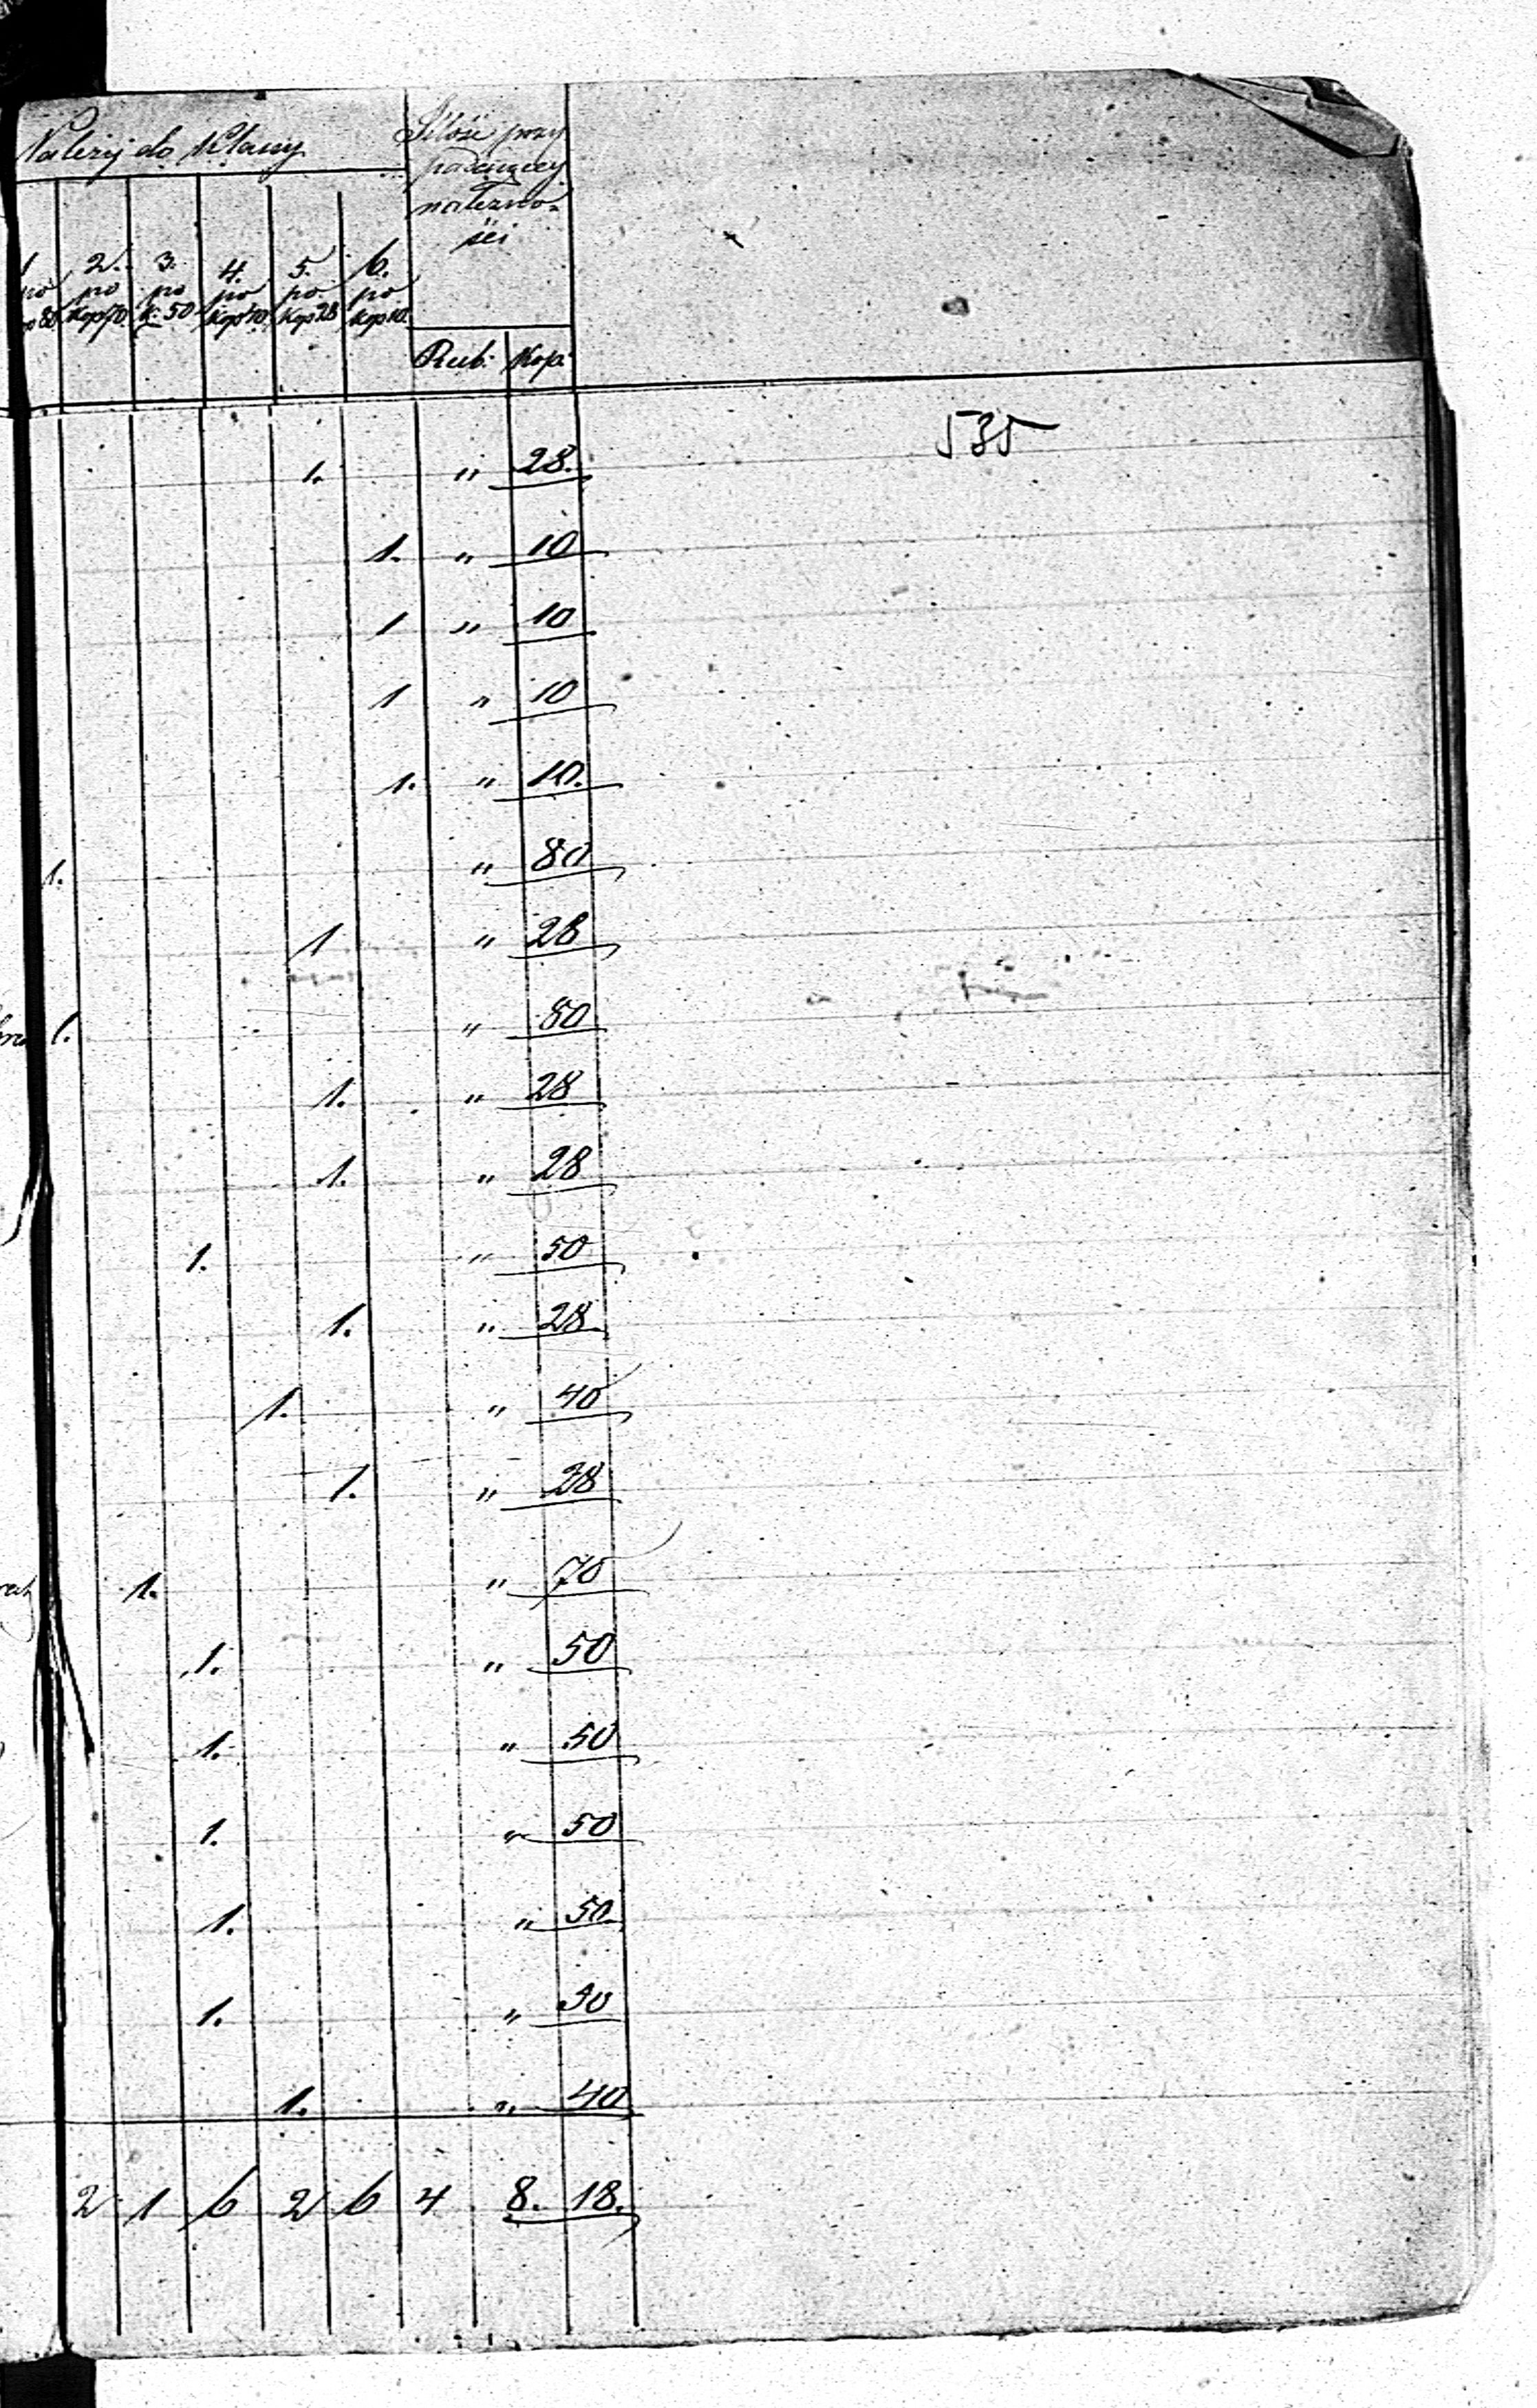 Należy do Klassy
Ilość przy
padającey
należno-
ści
1 2. 3. 4. 5. 6.
po po po po po po
80 Kop 70 K. 50 Kop 40 Kop 28 Kop 10
Rub. Kop.
535
1. " 28.
1. " 10
1 " 10
1 " 10
1. " 10.
1. " 80
1 " 28
1. " 80
1. " 28
1. " 28
1. " 50
1. " 28.
1. " 40
1. " 28
1. " 70
1. " 50
1. " 50
1. " 50
1. " 50.
1. " 50
1. " 40
2 1 6 2 6 4 8. 18.